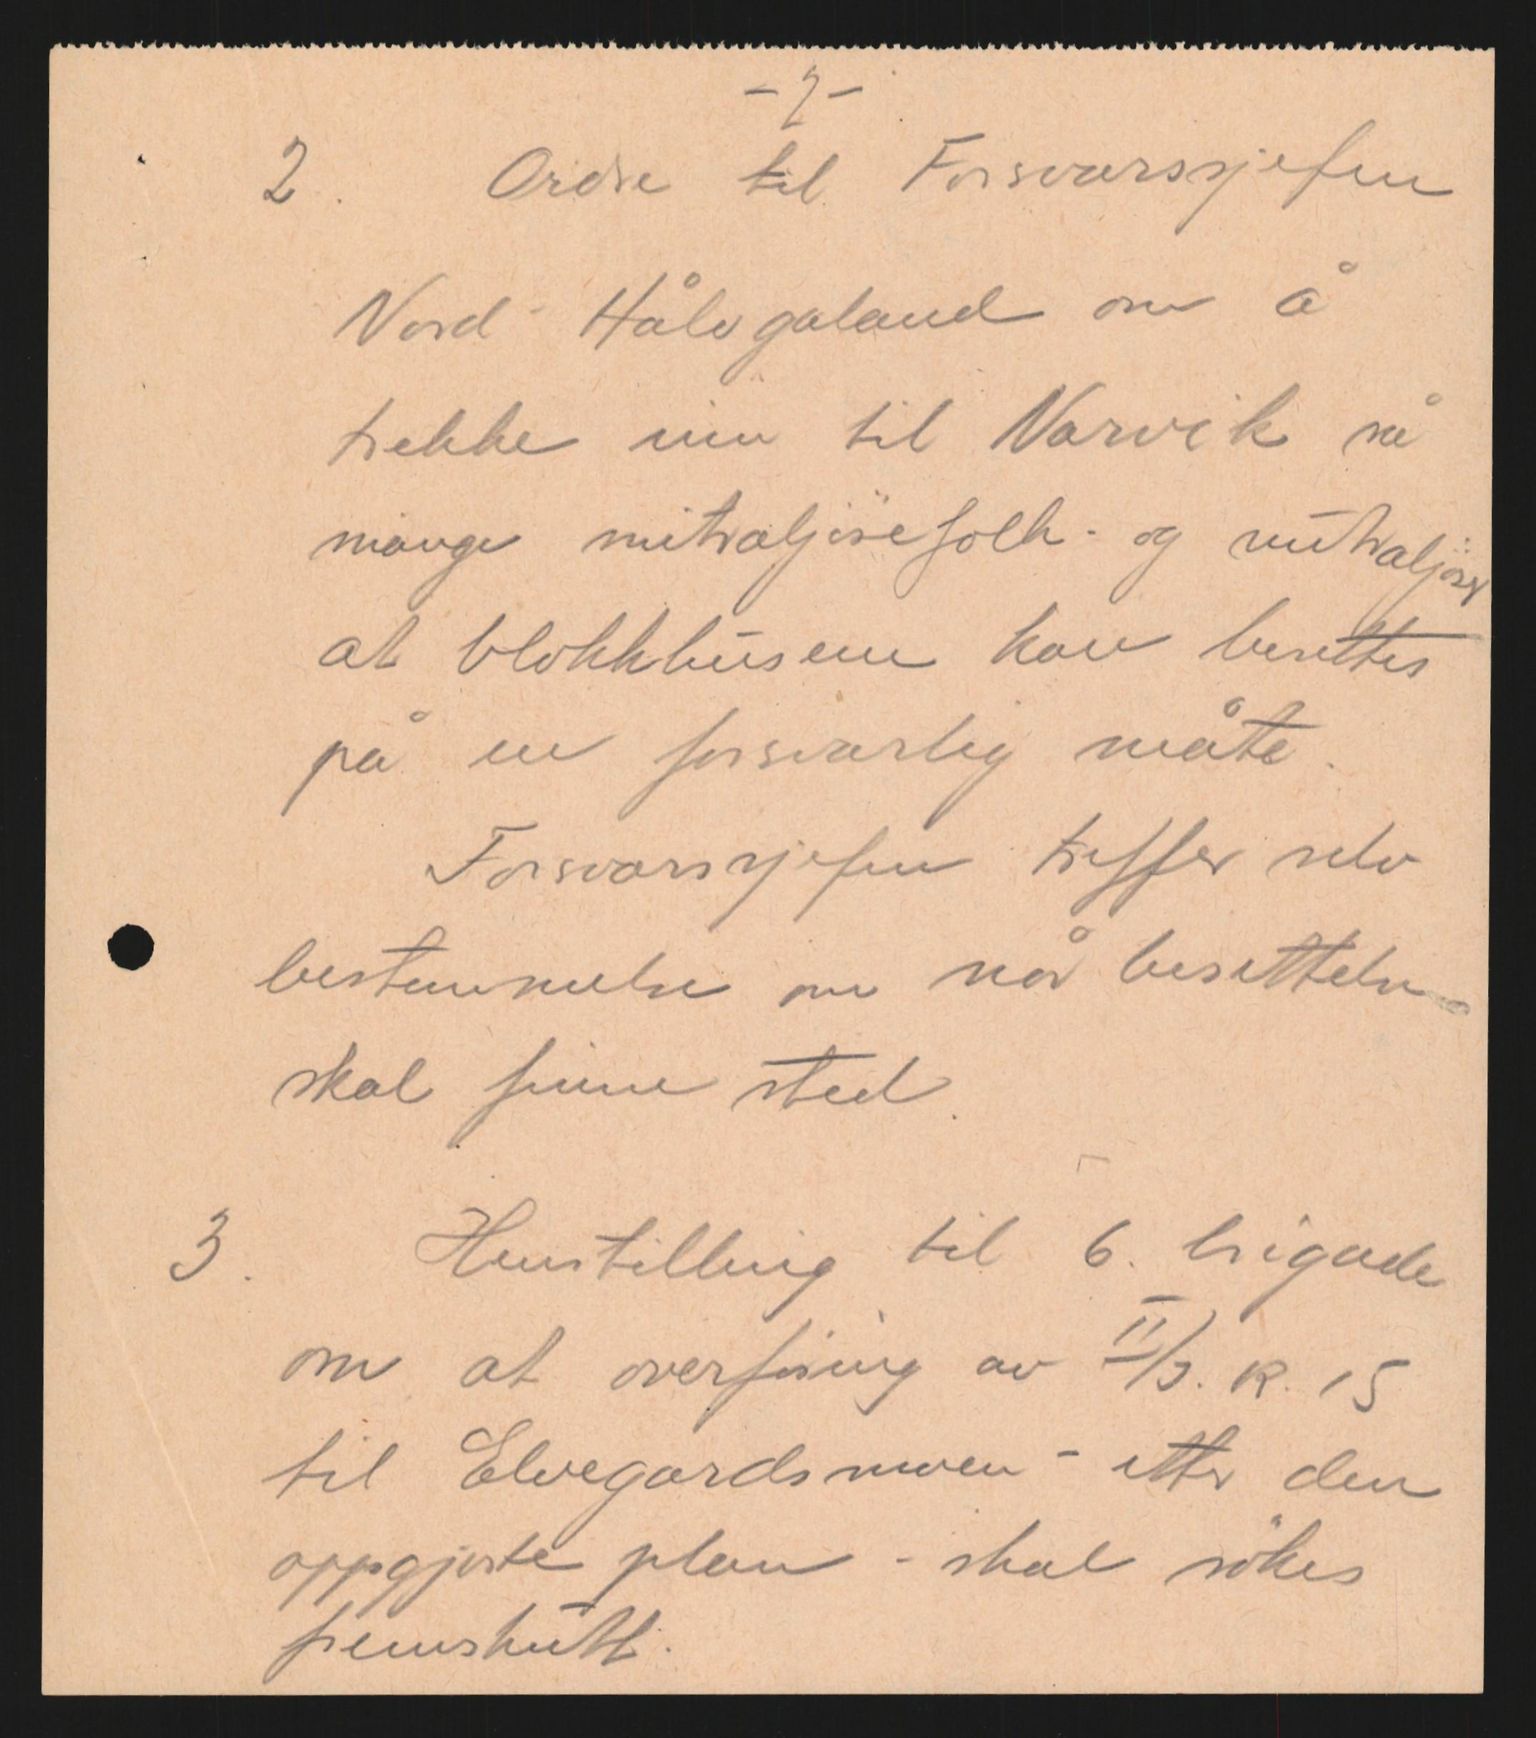 -2-
2. Ordre til Forsvarssjefen
Nord-Hålogaland om å
trekke inn til Narvik så
mange mitraljösefolk- og mitraljöser
at blokkhusene kan besettes
på en forsvarlig måte.
Forsvarssjefen treffer selv
bestemmelse om når besettelse
skal finne sted.
3. Henstilling til 6. brigade
om at overföring av II/I.R. 15
til Elvegardsmoen - etter den
oppgjorte plan - skal sökes
fremskutt.